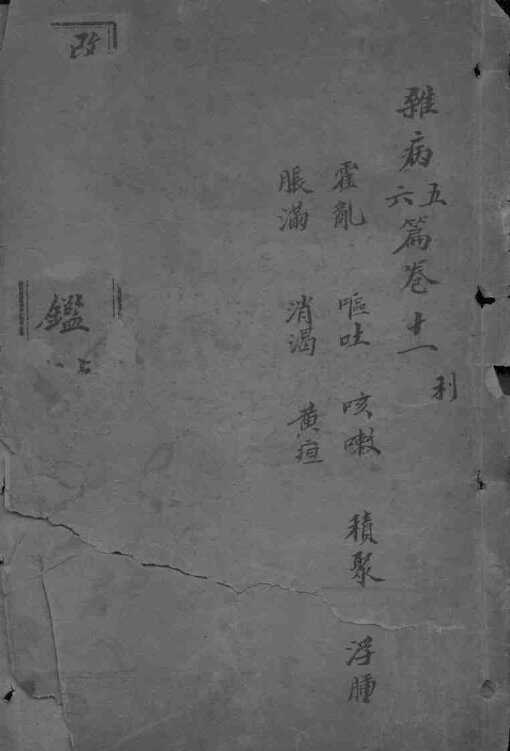 雜病五六篇卷十一
利
霍亂 嘔吐 咳嗽 積聚 浮腫
脹滿 消渴 黄疸
改
鑑
上